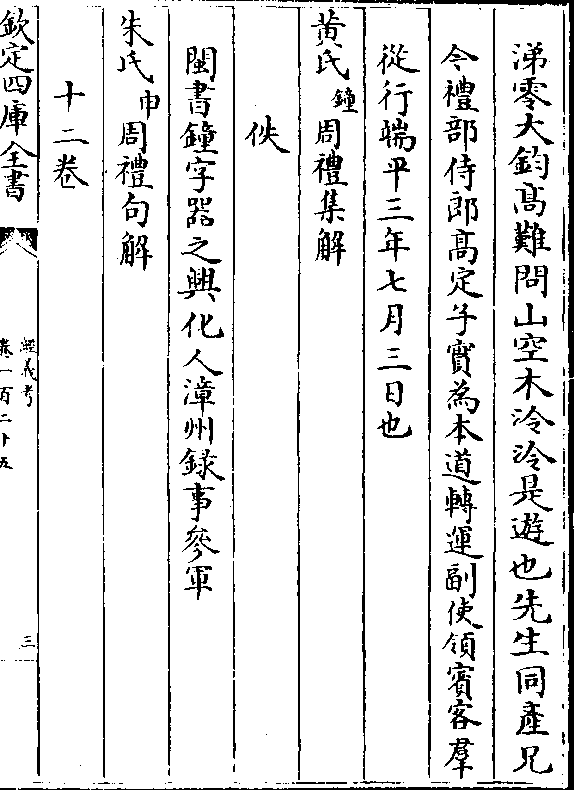 涕零大鈞髙難問山空木泠泠是遊也先生同產兄
今禮部侍郎髙定子實為本道轉運副使領賓客羣
從行端平三年七月三日也
黄氏鐘周禮集解
佚
閩書鐘字器之興化人漳州録事參軍
朱氏申周禮句解
十二卷
欽定四庫全書
經義考
卷一百二十五
三